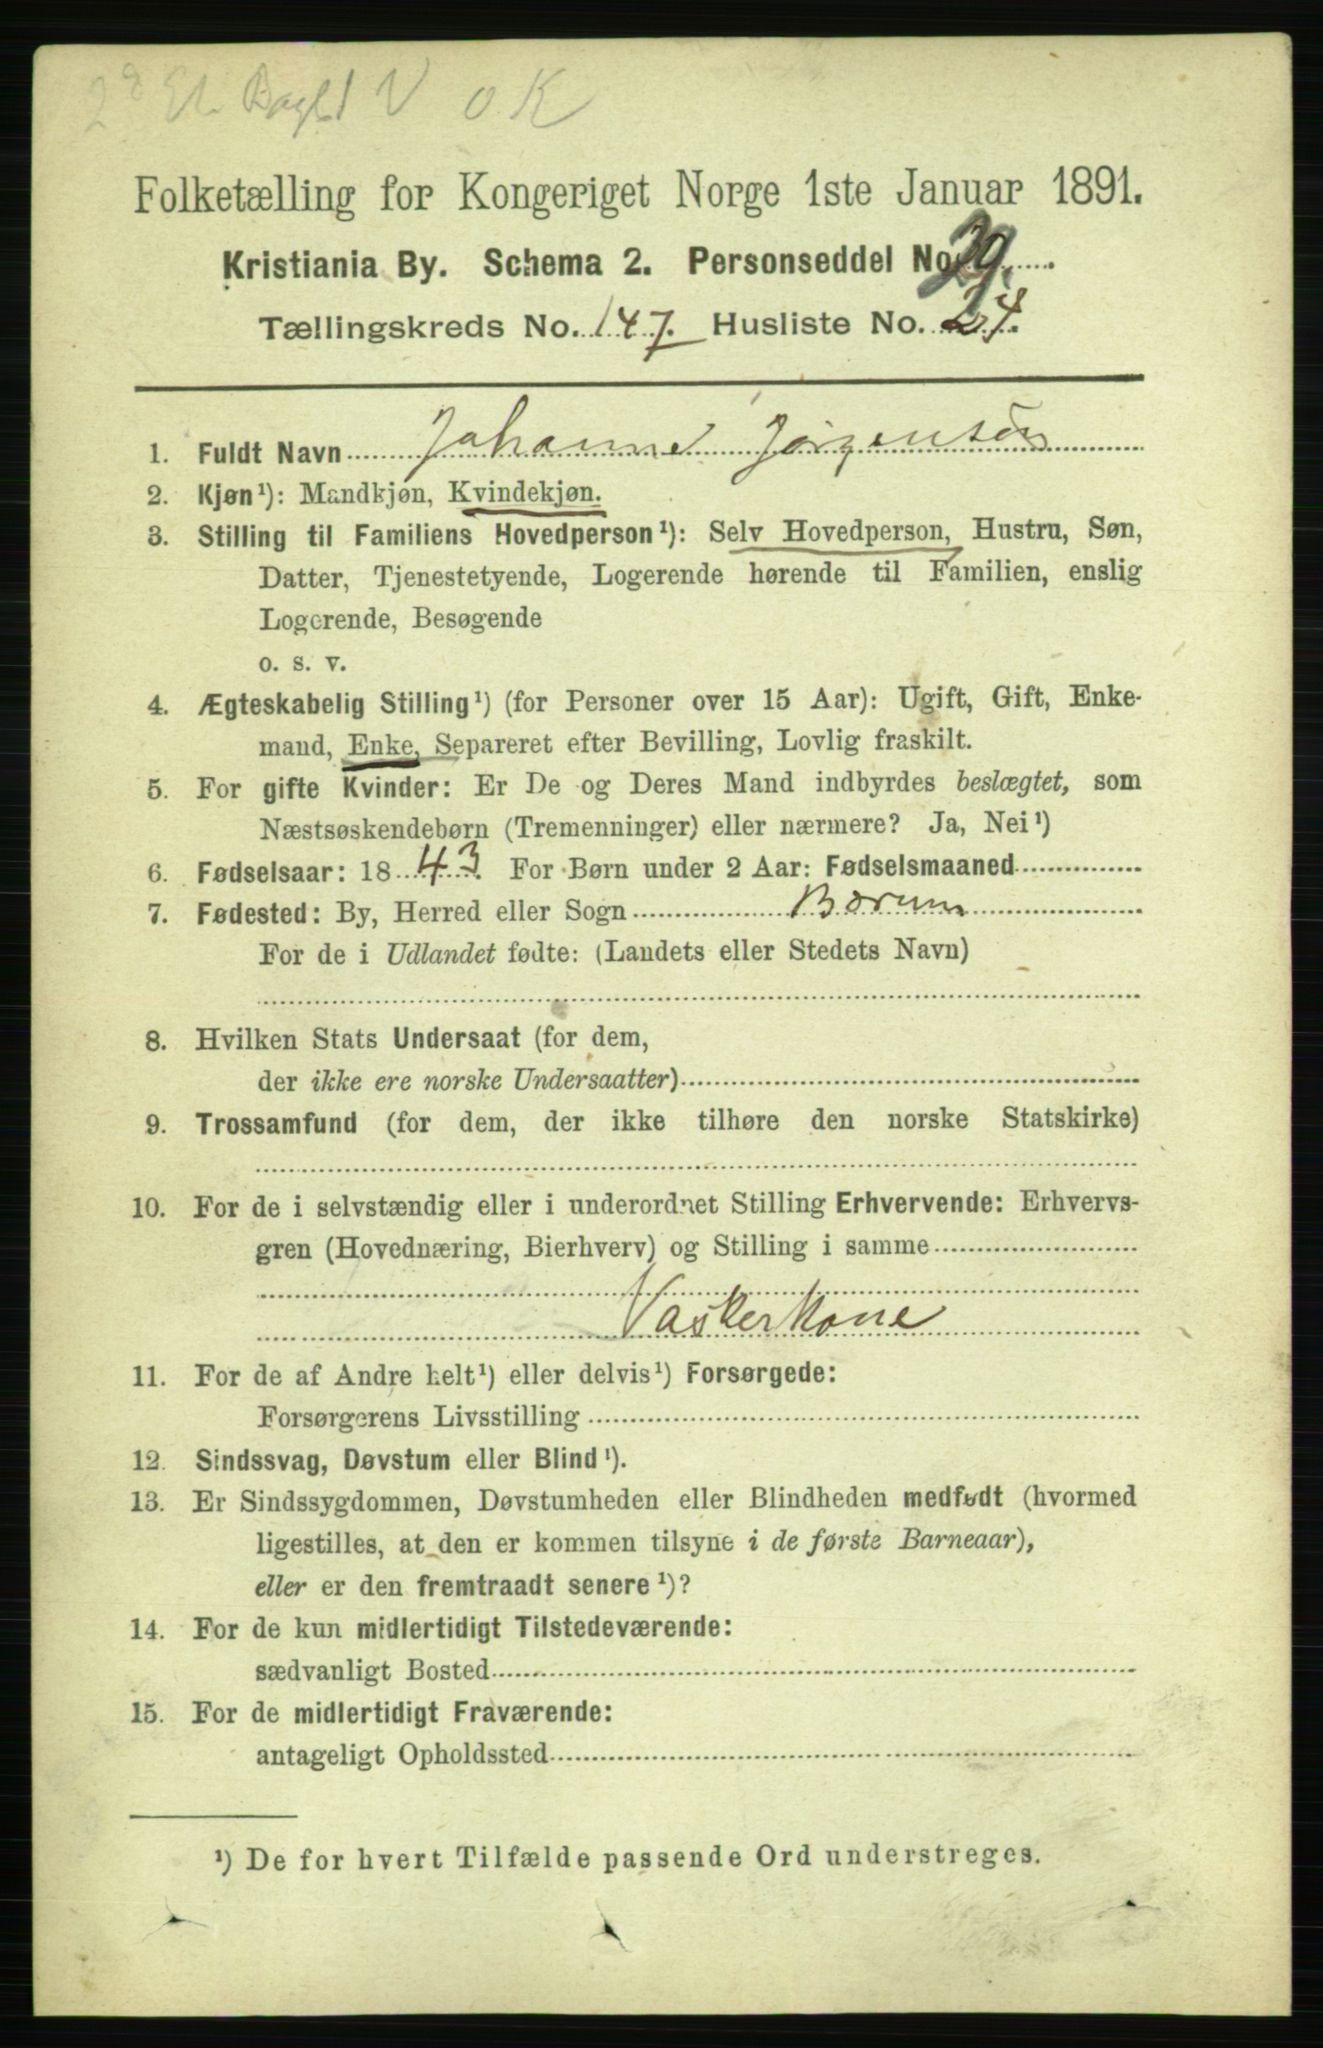 2 Et. V o K
Folketælling for Kongeriget Norge 1ste Januar 1891.
Kristiania By. Schema 2. Personseddel No.
Tællingskreds No. 147. Husliste No. 24.
1. Fuldt Navn Johanne Jørgensen
2. Kjøn¹): Mandkjøn, Kvindekjøn.
3. Stilling til Familiens Hovedperson¹): Selv Hovedperson, Hustru, Søn,
Datter, Tjenestetyende, Logerende hørende til Familien, enslig
Logerende, Besøgende
o. s. v.
4. Ægteskabelig Stilling¹) (for Personer over 15 Aar): Ugift, Gift, Enke-
mand, Enke, Separeret efter Bevilling, Lovlig fraskilt.
5. For gifte Kvinder: Er De og Deres Mand indbyrdes beslægtet, som
Næstsøskendebørn (Tremenninger) eller nærmere? Ja, Nei¹)
6. Fødselsaar: 1843. For Børn under 2 Aar: Fødselsmaaned
7. Fødested: By, Herred eller Sogn Bærum
For de i Udlandet fødte: (Landets eller Stedets Navn)
8. Hvilken Stats Undersaat (for dem,
der ikke ere norske Undersaatter)
9. Trossamfund (for dem, der ikke tilhøre den norske Statskirke)
10. For de i selvstændig eller i underordnet Stilling Erhvervende: Erhvervs-
gren (Hovednæring, Bierhverv) og Stilling i samme
Vaskerkone
11. For de af Andre helt¹) eller delvis¹) Forsørgede:
Forsørgerens Livsstilling
12. Sindssvag, Døvstum eller Blind¹).
13. Er Sindssygdommen, Døvstumheden eller Blindheden medfødt (hvormed
ligestilles, at den er kommen tilsyne i de første Barneaar),
eller er den fremtraadt senere¹)?
14. For de kun midlertidigt Tilstedeværende:
sædvanligt Bosted
15. For de midlertidigt Fraværende:
antageligt Opholdssted
¹) De for hvert Tilfælde passende Ord understreges.